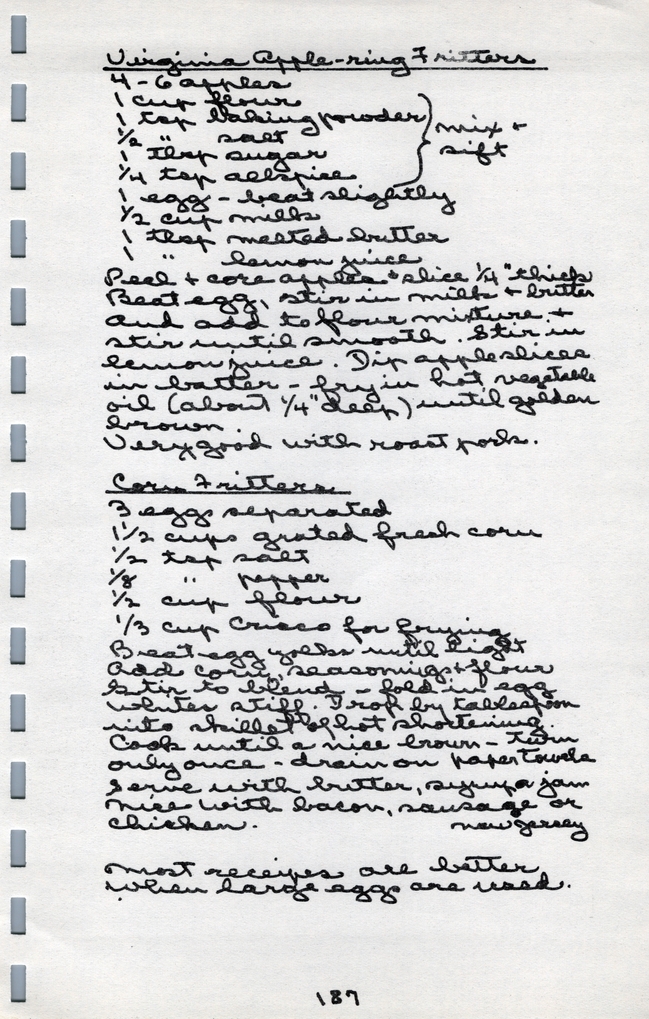 Virginia Apple-ring Fritters
4-6 apples
1 cup flour
1 tsp baking powder
1/2 " salt
1 tbsp sugar
1/4 tsp allspice
mix +
sift
1 egg - beat slightly
1/2 cup milk
1 tbsp melted butter
1 " lemon juice
Peel + core apples + slice 1/4" thick
Beat egg, stir in milk + butter
and add to flour mixture +
stir until smooth. Stir in
lemon juice. Dip apple slices
in batter - fry in hot vegetable
oil (about 1/4" deep) until golden
brown.
Very good with roast pork.
Corn Fritters
3 eggs separated
1 1/2 cups grated fresh corn
1/2 tsp salt
1/8 " pepper
1/2 cup flour
1/3 cup Crisco for frying
Beat egg yolks until light
Add corn, seasonings + flour
Stir to blend - fold in egg
whites stiff. Drop by tablespoon
into skillet of hot shortening.
Cook until a nice brown - turn
only once - drain on paper towels
Serve with butter, syrup or jam
Nice with bacon, sausage or
chicken. New Jersey
Most receipes are better
when large eggs are used.
187